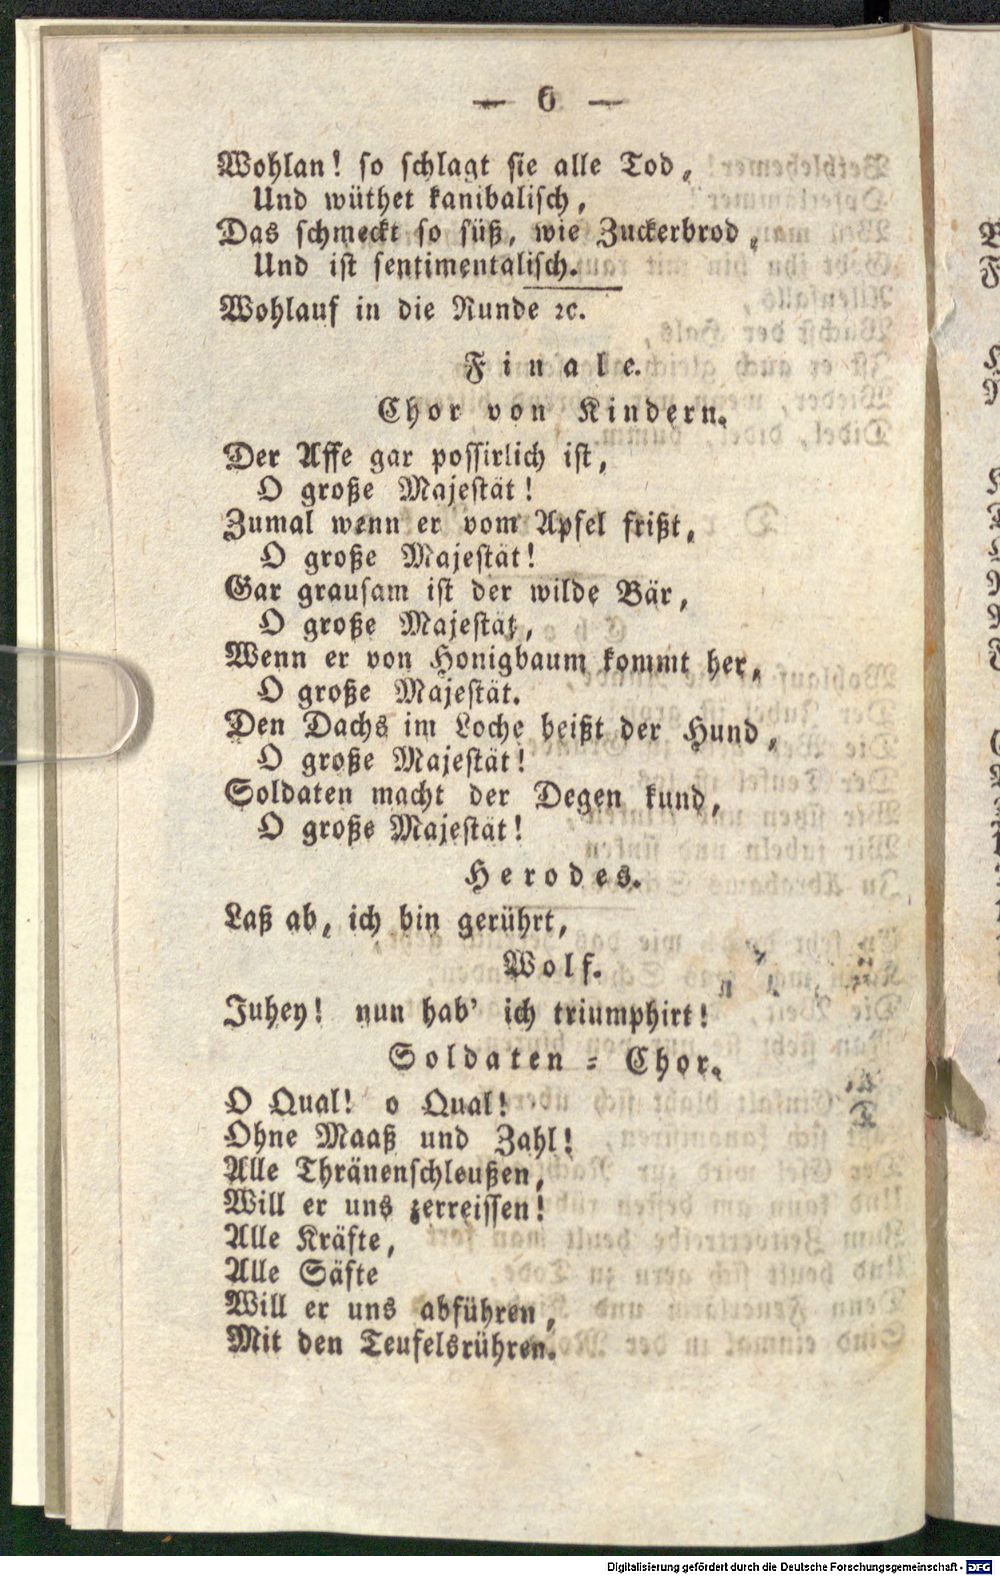 — 6 —
Wohlan! so schlagt sie alle Tod,
Und wüthet kanibalisch,
Das schmeckt so süß, wie Zuckerbrod,
Und ist sentimentalisch.
Wohlauf in die Runde ꝛc.
Finale.
Chor von Kindern.
Der Affe gar possirlich ist,
O große Majestät!
Zumal wenn er vom Apfel frißt,
O große Majestät!
Gar grausam ist der wilde Bär,
O große Majestät,
Wenn er von Honigbaum kommt her,
O große Majestät.
Den Dachs im Loche beißt der Hund,
O große Majestät!
Soldaten macht der Degen kund,
O große Majestät!
Herodes.
Laß ab, ich bin gerührt,
Wolf.
Juhey! nun hab' ich triumphirt!
Soldaten = Chor.
O Qual! o Qual!
Ohne Maaß und Zahl!
Alle Thränenschleußen,
Will er uns zerreissen!
Alle Kräfte,
Alle Säfte
Will er uns abführen,
Mit den Teufelsrühren.
Digitalisierung gefördert durch die Deutsche Forschungsgemeinschaft - DFG